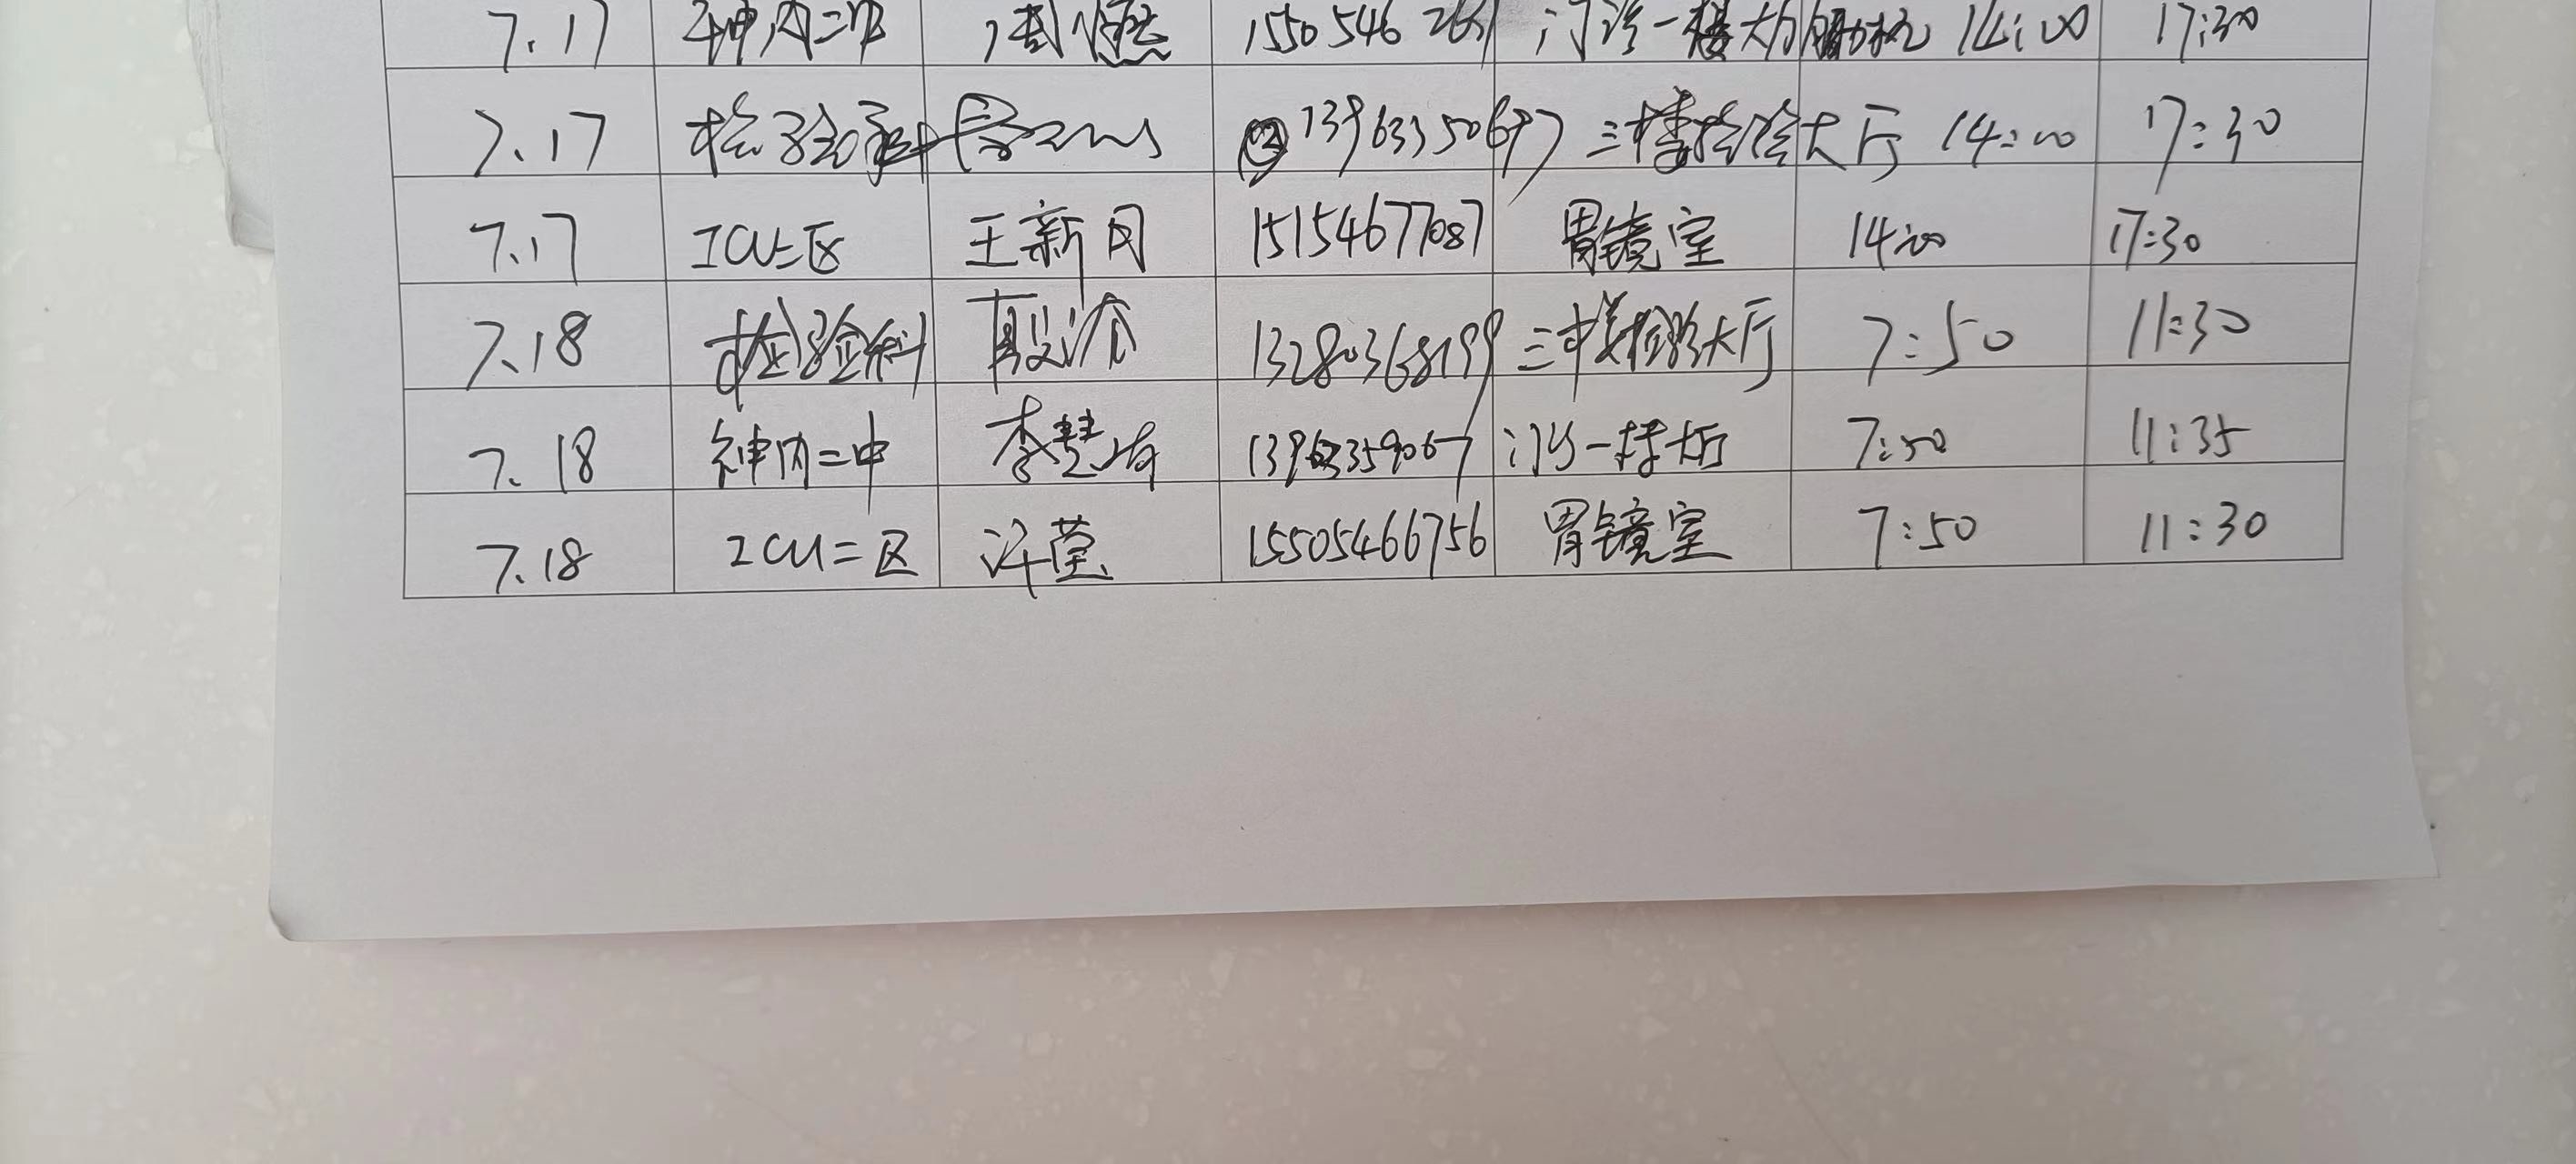 7.17 神内二中 1550546 门诊一楼大厅 14:00 17:30
7.17 检验科 三楼检验大厅 14:00 17:30
7.17 ICU二区 王新月 15154677087 胃镜室 14:00 17:30
7.18 检验科 13280368199 三楼检验大厅 7:50 11:30
7.18 神内二中 李慧 13963359067 门诊一楼大厅 7:50 11:35
7.18 ICU二区 许莹 15505466756 胃镜室 7:50 11:30